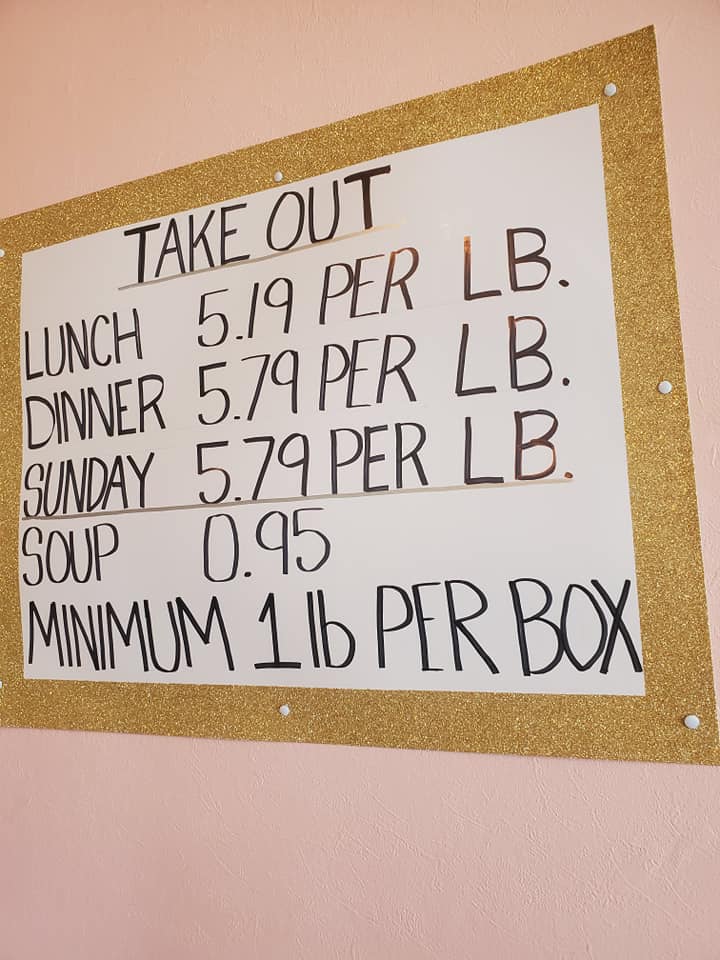 TAKE OUT
LUNCH 5.19 PER LB.
DINNER 5.79 PER LB.
SUNDAY 5.79 PER LB.
SOUP 0.95
MINIMUM 1 lb PER BOX